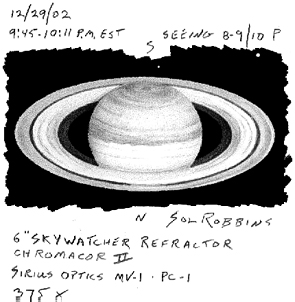 12/29/02
9:45-10:11 P.M. EST SEEING 8-9/10 P
S
N SOL ROBBINS
6" SKYWATCHER REFRACTOR
CHROMACOR II
SIRIUS OPTICS MV-1 · PC-1
375 X